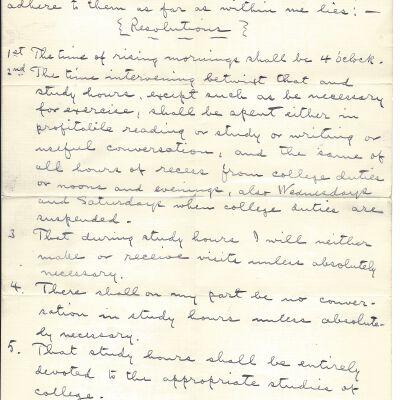 adhere to them as far as within me lies: —
{Resolutions}
1st The time of rising mornings shall be 4 o'clock.
2nd The time intervening betwixt that and
study hours, except such as be necessary
for exercise, shall be spent either in
profitable reading or study or writing or
useful conversation, and the same of
all hours of recess from college duties
or noons and evenings, also Wednesdays
and Saturdays when college duties are
suspended.
3 That during study hours I will neither
make or receive visits unless absolutely
necessary.
4. There shall on my part be no conver-
sation in study hours unless absolute-
ly necessary.
5. That study hours shall be entirely
devoted to the appropriate studies of
college.